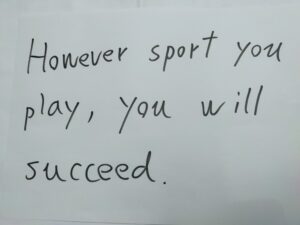 However sport you
play, you will
succeed.